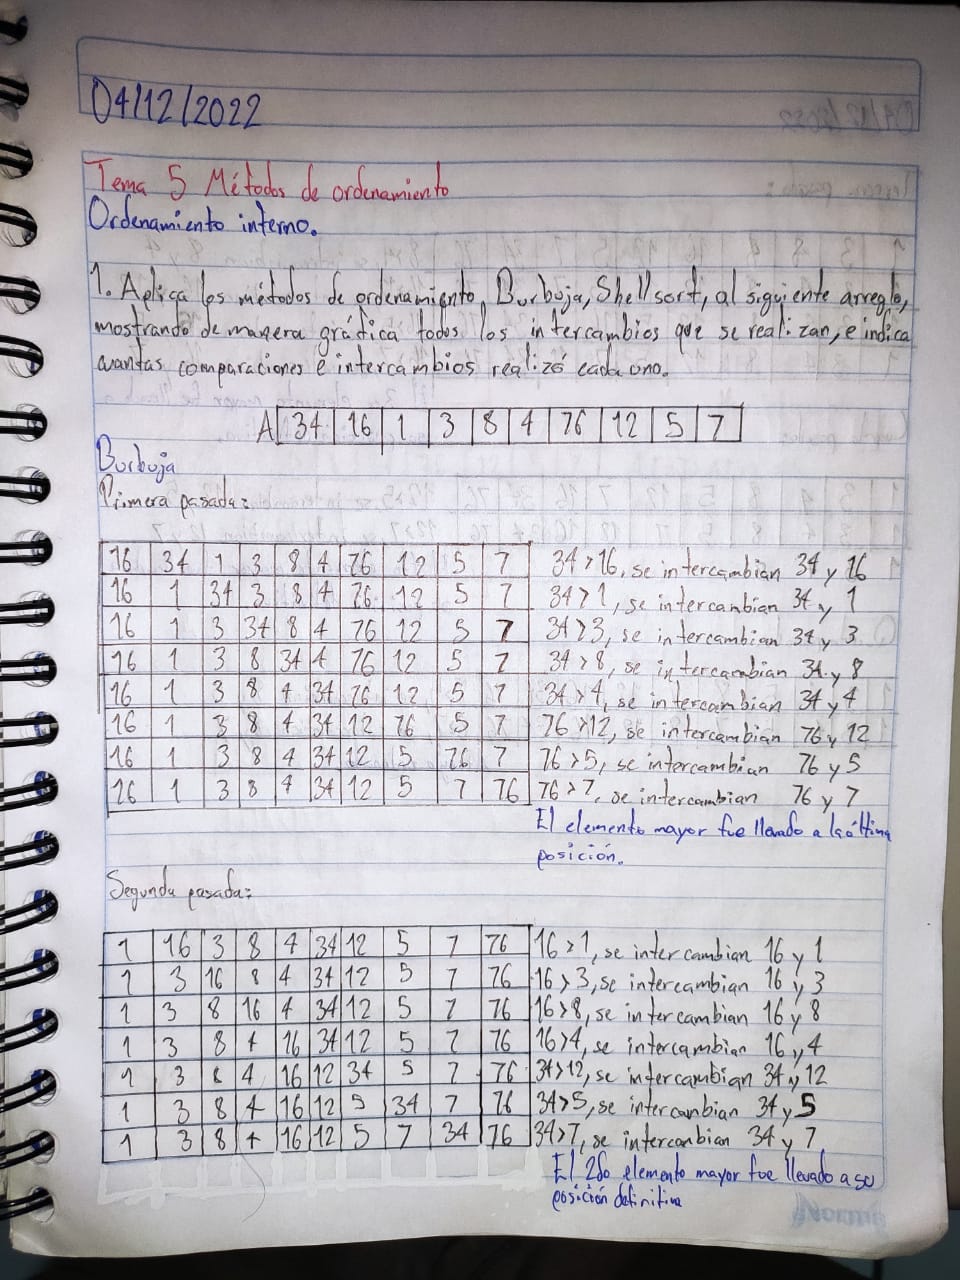 04/12/2022
Tema 5 Métodos de ordenamiento
Ordenamiento interno.
1. Aplica los métodos de ordenamiento, Burbuja, Shell sort, al siguiente arreglo,
mostrando de manera gráfica todos los intercambios que se realizan, e indica
cuantas comparaciones e intercambios realizó cada uno.
A 34 16 1 3 8 4 76 12 5 7
Burbuja
Primera pasada:
16 34 1 3 8 4 76 12 5 7 34>16, se intercambian 34 y 16
16 1 34 3 8 4 76 12 5 7 34>1, se intercambian 34 y 1
16 1 3 34 8 4 76 12 5 7 34>3, se intercambian 34 y 3
16 1 3 8 34 4 76 12 5 7 34>8, se intercambian 34 y 8
16 1 3 8 4 34 76 12 5 7 34>4, se intercambian 34 y 4
16 1 3 8 4 34 12 76 5 7 76>12, se intercambian 76 y 12
16 1 3 8 4 34 12 5 76 7 76>5, se intercambian 76 y 5
16 1 3 8 4 34 12 5 7 76 76>7, se intercambian 76 y 7
El elemento mayor fue llevado a la última
posición.
Segunda pasada:
1 16 3 8 4 34 12 5 7 76 16>1, se intercambian 16 y 1
1 3 16 8 4 34 12 5 7 76 16>3, se intercambian 16 y 3
1 3 8 16 4 34 12 5 7 76 16>8, se intercambian 16 y 8
1 3 8 4 16 34 12 5 7 76 16>4, se intercambian 16 y 4
1 3 8 4 16 12 34 5 7 76 34>12, se intercambian 34 y 12
1 3 8 4 16 12 5 34 7 76 34>5, se intercambian 34 y 5
1 3 8 4 16 12 5 7 34 76 34>7, se intercambian 34 y 7
El 2do elemento mayor fue llevado a su
posición definitiva